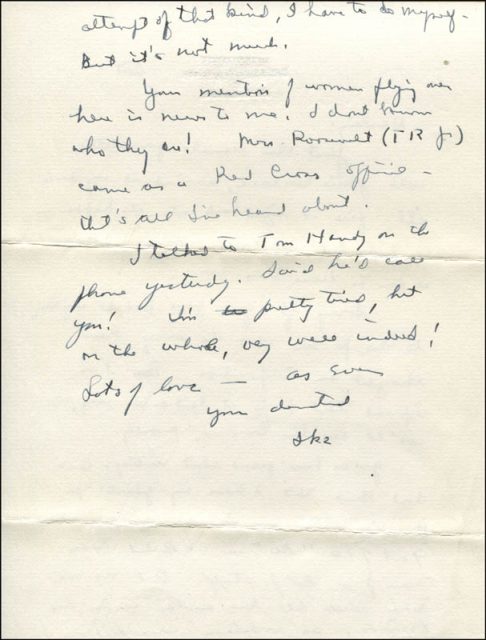 attempt of that kind, I have to do myself.
But it's not much.
Your mention of women flying over
here is news to me. I dont know
who they are! Mrs. Roosevelt (TR Jr)
came as a Red Cross official -
that's all I've heard about.
I talked to Tom Handy on the
phone yesterday. Said he'd call
you! I'm pretty tired, but
on the whole, very well indeed!
Lots of love — as ever
your devoted
Ike